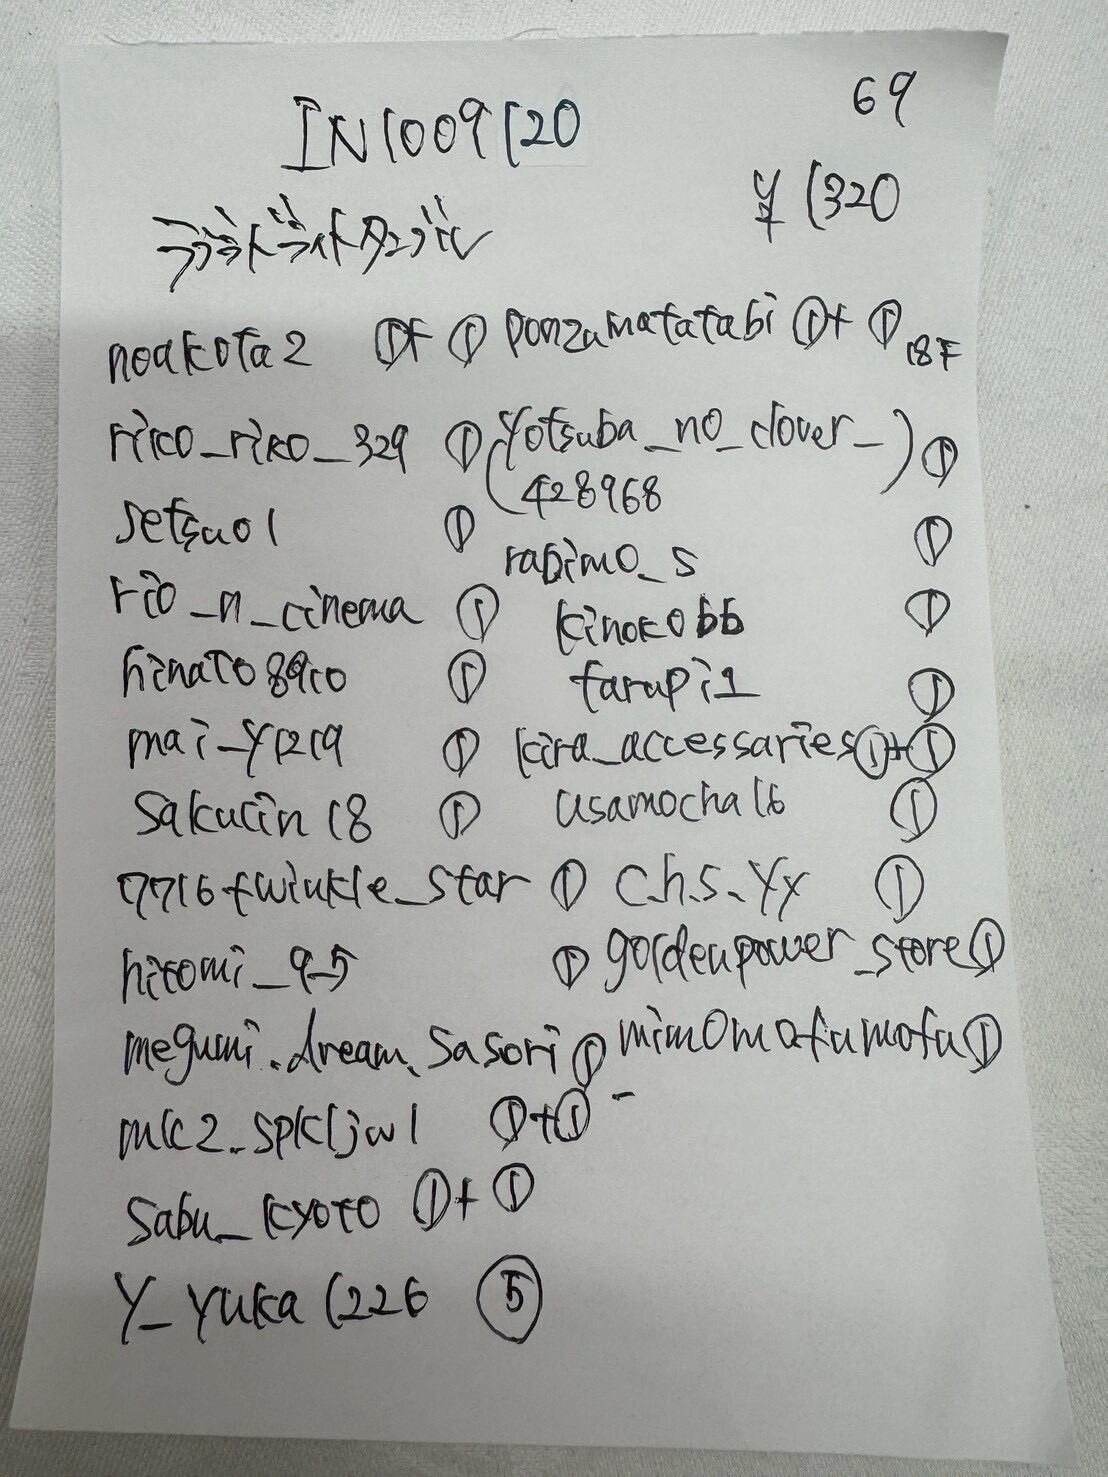 IN1009120
69
¥1320
noakota2 ①+① ponzumatatabi ①+① 18F
riko_riko_329 ① (yotsuba_no_clover_) ①
428968
setsuo1 ①
rabimo_s ①
rio_n_cinema ① kinoko66 ①
hinato8910 ① farupi1 ①
mai_y1219 ① kira_accessaries ①+①
sakurin18 ① usamocha16 ①
7716twinkle_star ① c.h.s.yy ①
hitomi_9_5 ① goldenpower_store ①
megumi.dream.sasori ① mimomofumofu ①
mk2_spkljwl ①+①
sabu_kyoto ①+①
Y_yuka1226 ⑤